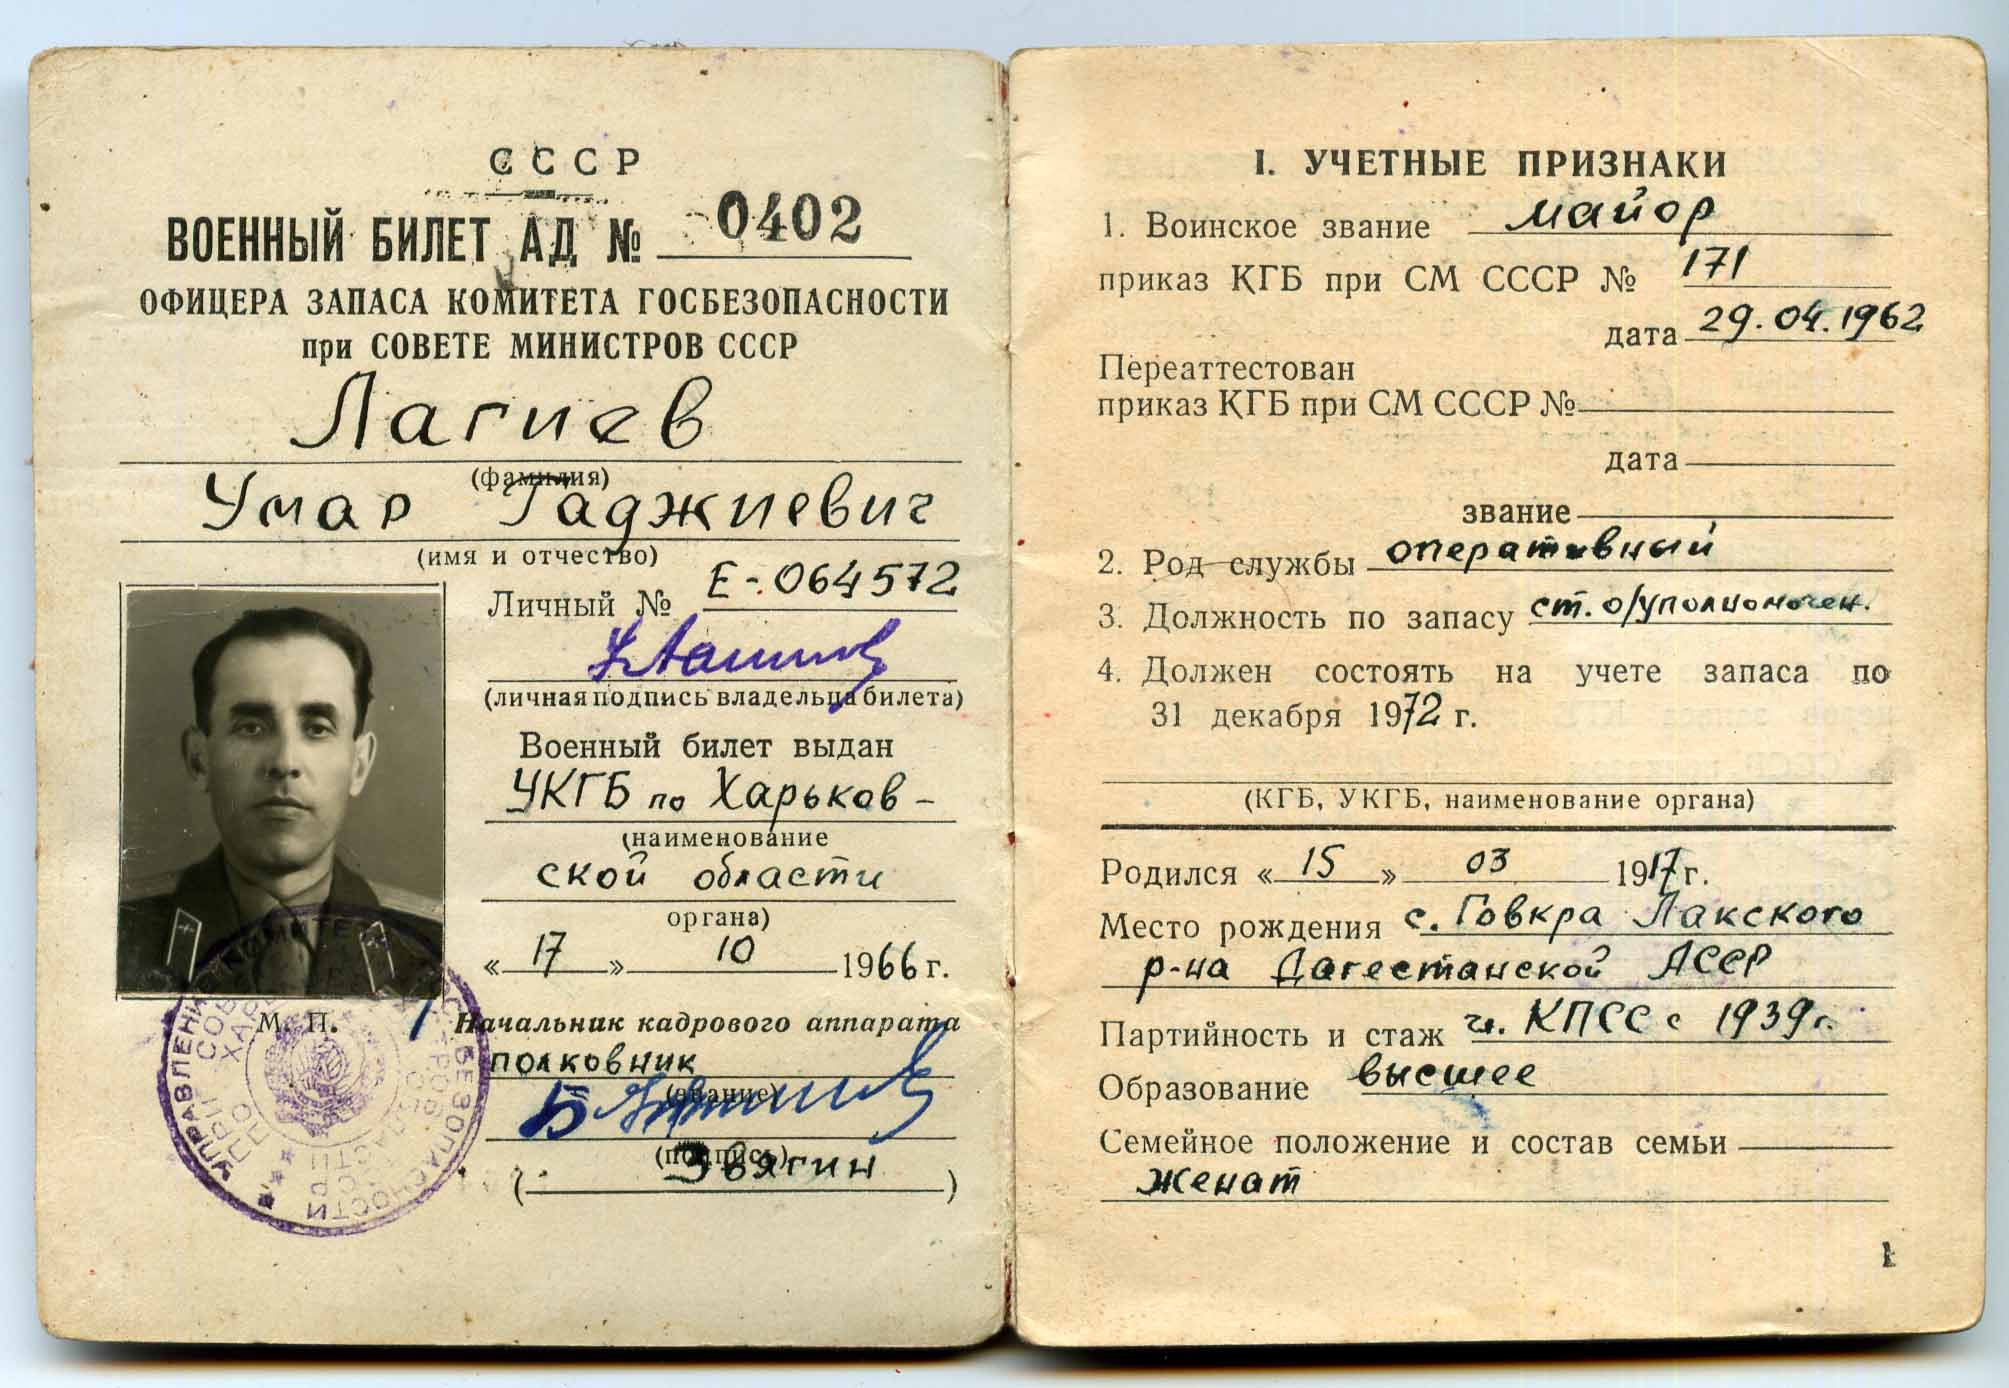 СССР
ВОЕННЫЙ БИЛЕТ АД № 0402
ОФИЦЕРА ЗАПАСА КОМИТЕТА ГОСБЕЗОПАСНОСТИ
при СОВЕТЕ МИНИСТРОВ СССР
Лагиев
(фамилия)
Умар Гаджиевич
(имя и отчество)
Личный № Е-064572
(личная подпись владельца билета)
Военный билет выдан
УКГБ по Харьков-
(наименование
ской области
органа)
« 17 » 10 1966 г.
М. П.
Начальник кадрового аппарата
полковник
(звание)
(подпись)
( Звягин )
УПРАВЛЕНИЕ КОМИТЕТА БЕЗОПАСНОСТИ
I. УЧЕТНЫЕ ПРИЗНАКИ
1. Воинское звание майор
приказ КГБ при СМ СССР № 171
дата 29.04.1962
Переаттестован
приказ КГБ при СМ СССР №
дата
звание
2. Род службы оперативный
3. Должность по запасу ст. о/уполномочен.
4. Должен состоять на учете запаса по
31 декабря 1972 г.
(КГБ, УКГБ, наименование органа)
Родился « 15 » 03 1917 г.
Место рождения с. Говкра Лакского
р-на Дагестанской АССР
Партийность и стаж чл. КПСС с 1939 г.
Образование высшее
Семейное положение и состав семьи
Женат
1